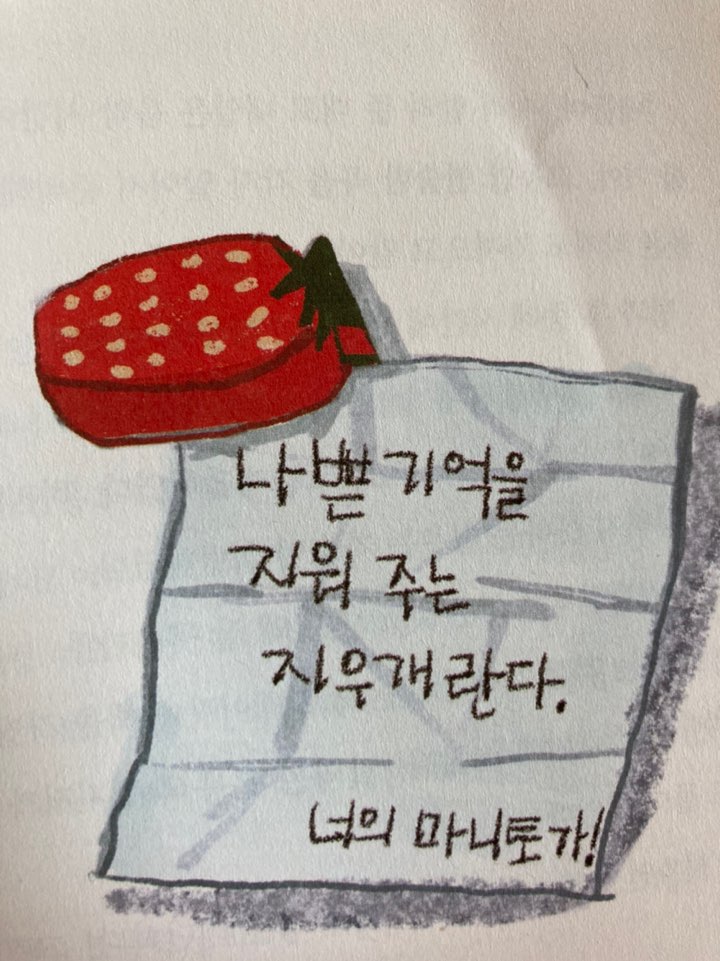 나쁜 기억을
지워 주는
지우개란다.
너의 마니토가!